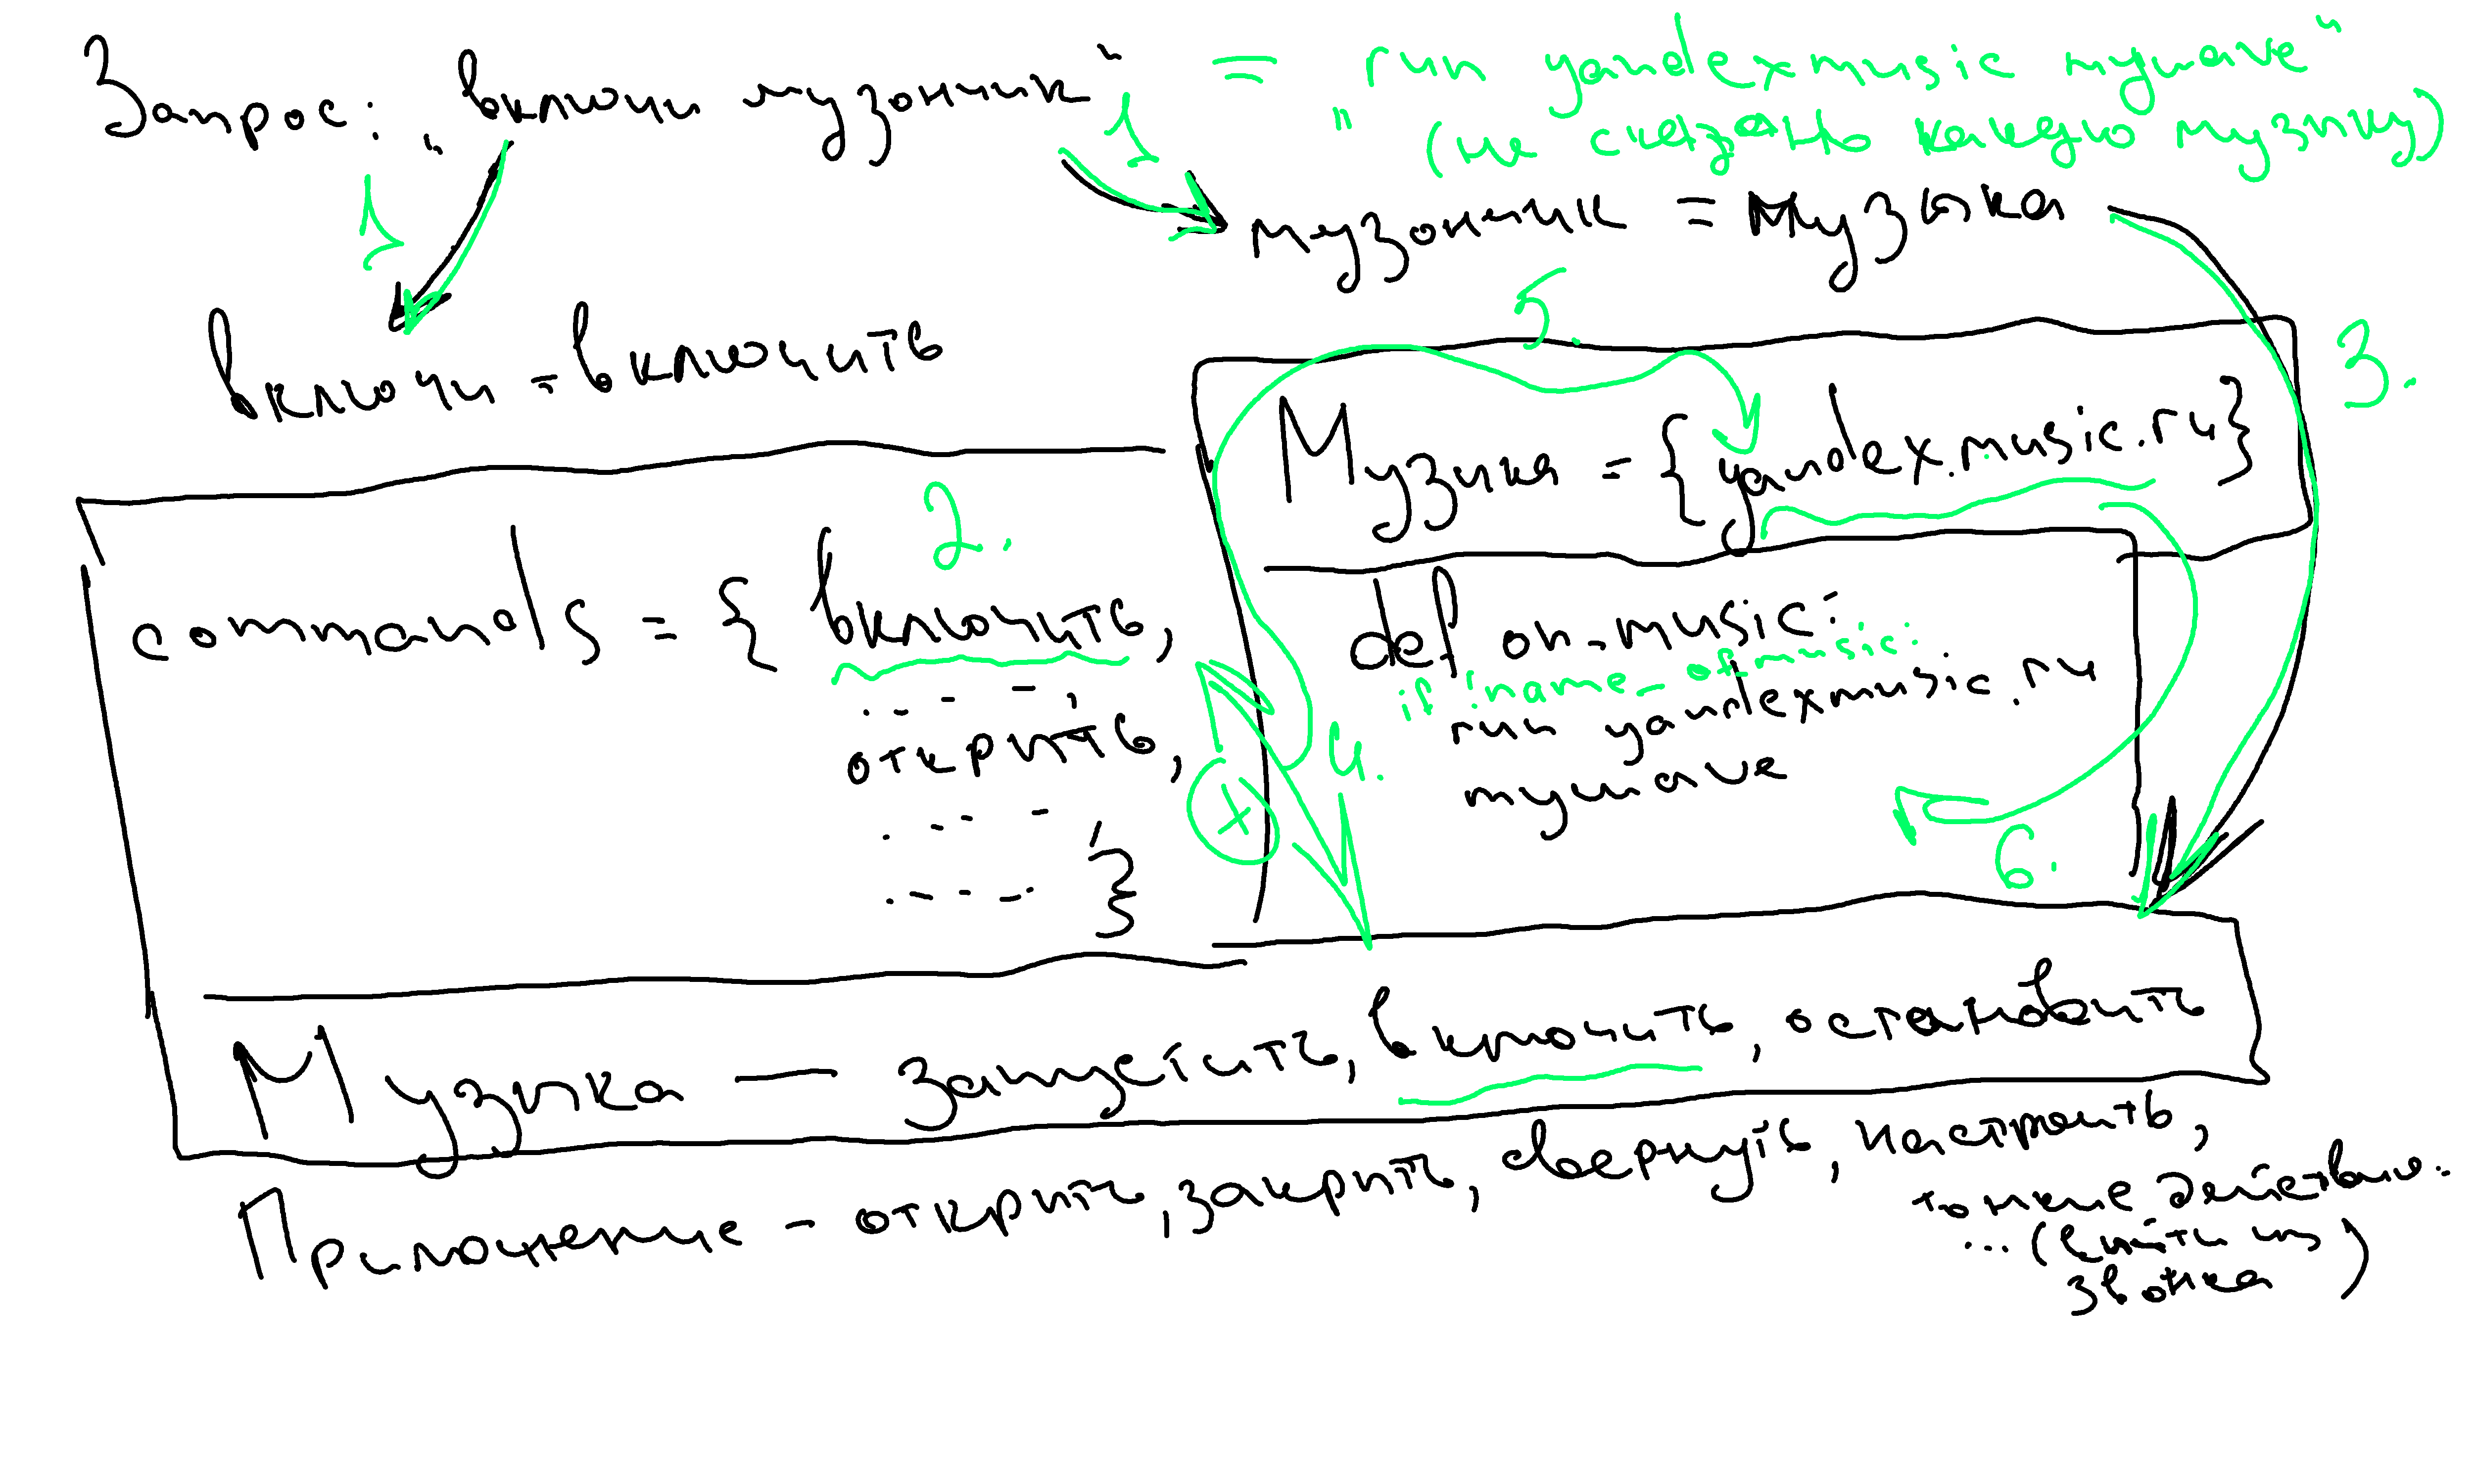 Запрос: „включи музончик“ = "run yandexmusic mywave"
(не сказано какую музыку)
1. 1.
музончик = музыка
включи = включить
5. 3.
Музыка = {yandex.music.ru}
2.
commands = {включить,
- - - -,
открыть,
- - - - ,
- - - - }
def on-music:
if !name_of_music:
run yandexmusic.ru
mywave
4.
6.
Музыка — запустить, включить, остановить
Приложение - открыть, закрыть, свернуть, настроить,
тонкие действия..
... (выйти из
звонка)